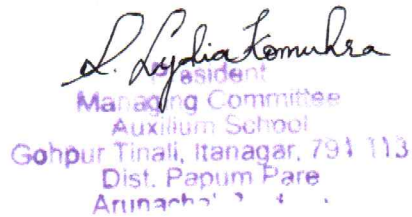 S. Lydia Komuhra
President
Managing Committee
Auxilium School
Gohpur Tinali, Itanagar, 791 113
Dist. Papum Pare
Arunachal